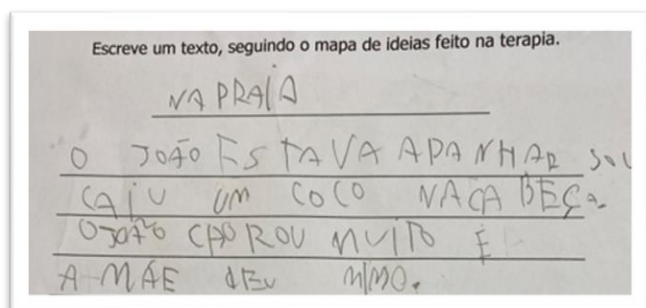 Escreve um texto, seguindo o mapa de ideias feito na terapia.
NA PRAIA
O JOÃO ESTAVA APANHAR SOL
CAIU UM COCO NACABEÇA
OJOÃO CHOROU MUITO E
A MÃE dEU MIMO.